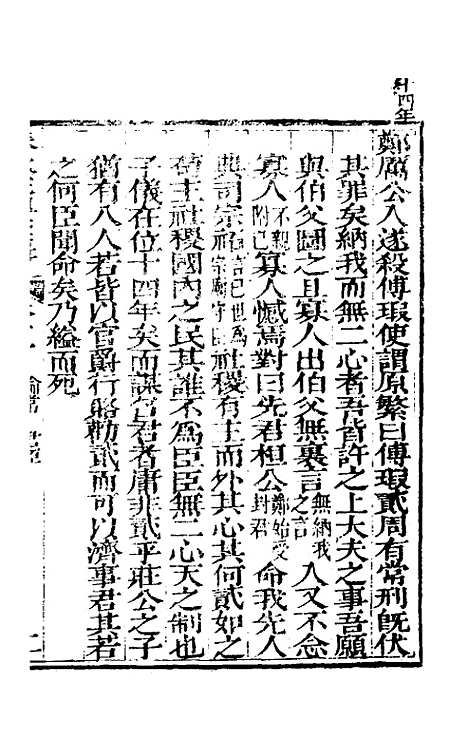 十四年
鄭厲公入遂殺傅瑕使謂原繁曰傅瑕貳周有常刑旣伏
其罪矣納我而無二心者吾皆許之上大夫之事吾願
與伯父圖之且寡人出伯父無裏言無納我之言入又不念
寡人不親附己寡人憾焉對曰先君桓公鄭始受封君命我先人
典司宗祏言己世為宗廟守臣社稷有主而外其心其何貳如之
苟主社稷國內之民其誰不爲臣臣無二心天之制也
子儀在位十四年矣而謀召君者庸非貳乎莊公之子
猶有八人若皆以官爵行賂勸貳而可以濟事君其若
之何臣聞命矣乃縊而死